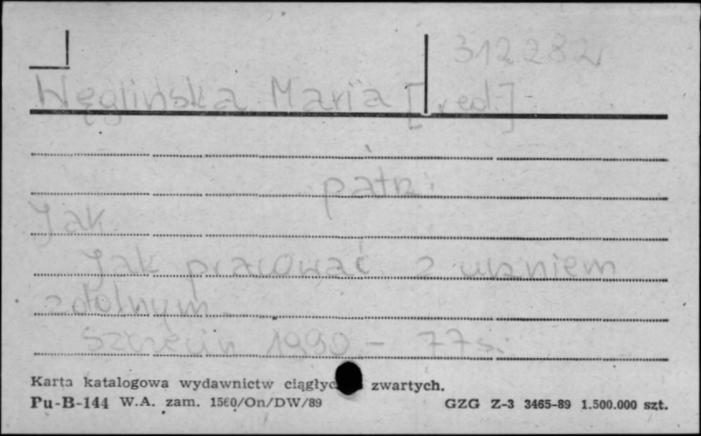 312282
Węglińska Maria [red.]
patrz:
Jak
Jak pracować z uczniem
zdolnym.
Szczecin 1990 - 77 s.
Karta katalogowa wydawnictw ciągłyc zwartych.
Pu-B-144 W.A. zam. 1560/On/DW/89 GZG Z-3 3465-89 1.500.000 szt.